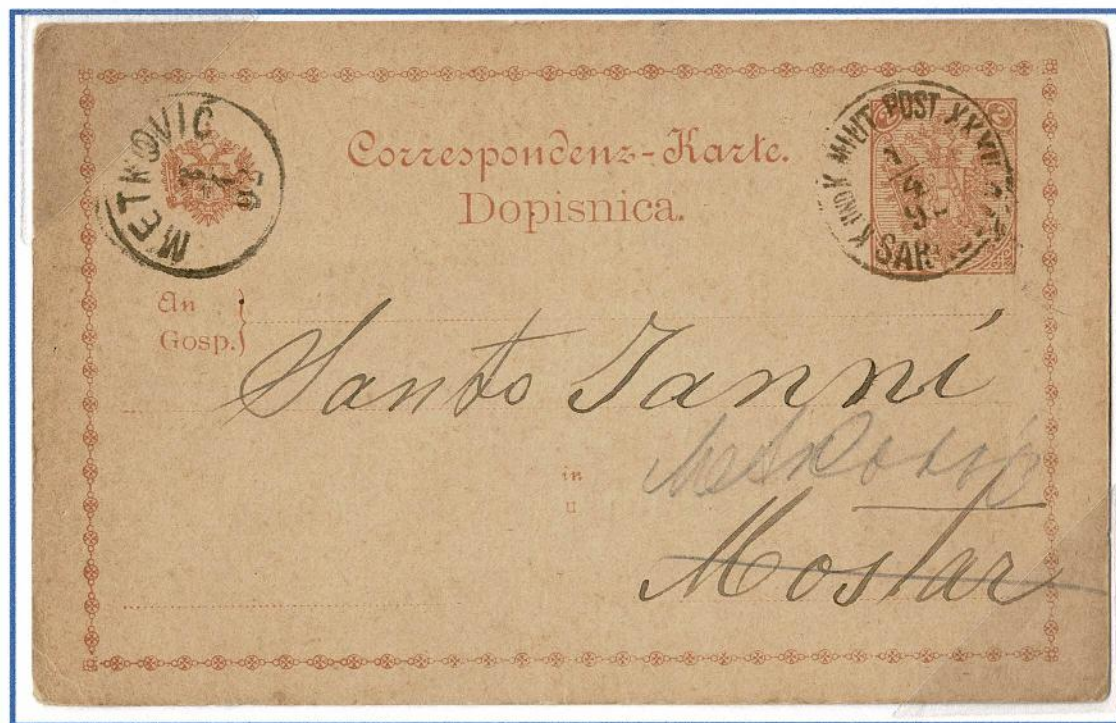 METKOVIĆ
Correspondenz-Karte.
Dopisnica.
K UND K MILIT POST XXXVII
2
An
Gosp.}
Santo Janni
Metković
in
u
Mostar